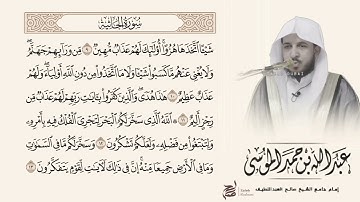 سُورَةُ الجَاثِيَةِ
شَيْئًا اتَّخَذَهَا هُزُوًا أُولَٰئِكَ لَهُمْ عَذَابٌ مُّهِينٌ ٩ مِّن وَرَائِهِمْ جَهَنَّمُ
وَلَا يُغْنِي عَنْهُم مَّا كَسَبُوا شَيْئًا وَلَا مَا اتَّخَذُوا مِن دُونِ اللَّهِ أَوْلِيَاءَ وَلَهُمْ
عَذَابٌ عَظِيمٌ ١٠ هَٰذَا هُدًى وَالَّذِينَ كَفَرُوا بِآيَاتِ رَبِّهِمْ لَهُمْ عَذَابٌ مِّن
رِّجْزٍ أَلِيمٌ ١١ اللَّهُ الَّذِي سَخَّرَ لَكُمُ الْبَحْرَ لِتَجْرِيَ الْفُلْكُ فِيهِ بِأَمْرِهِ
وَلِتَبْتَغُوا مِن فَضْلِهِ وَلَعَلَّكُمْ تَشْكُرُونَ ١٢ وَسَخَّرَ لَكُم مَّا فِي السَّمَاوَاتِ
وَمَا فِي الْأَرْضِ جَمِيعًا مِّنْهُ إِنَّ فِي ذَٰلِكَ لَآيَاتٍ لِّقَوْمٍ يَتَفَكَّرُونَ ١٣
عبدالله بن حمد الموسى
إمام جامع الشيخ صالح العبداللطيف